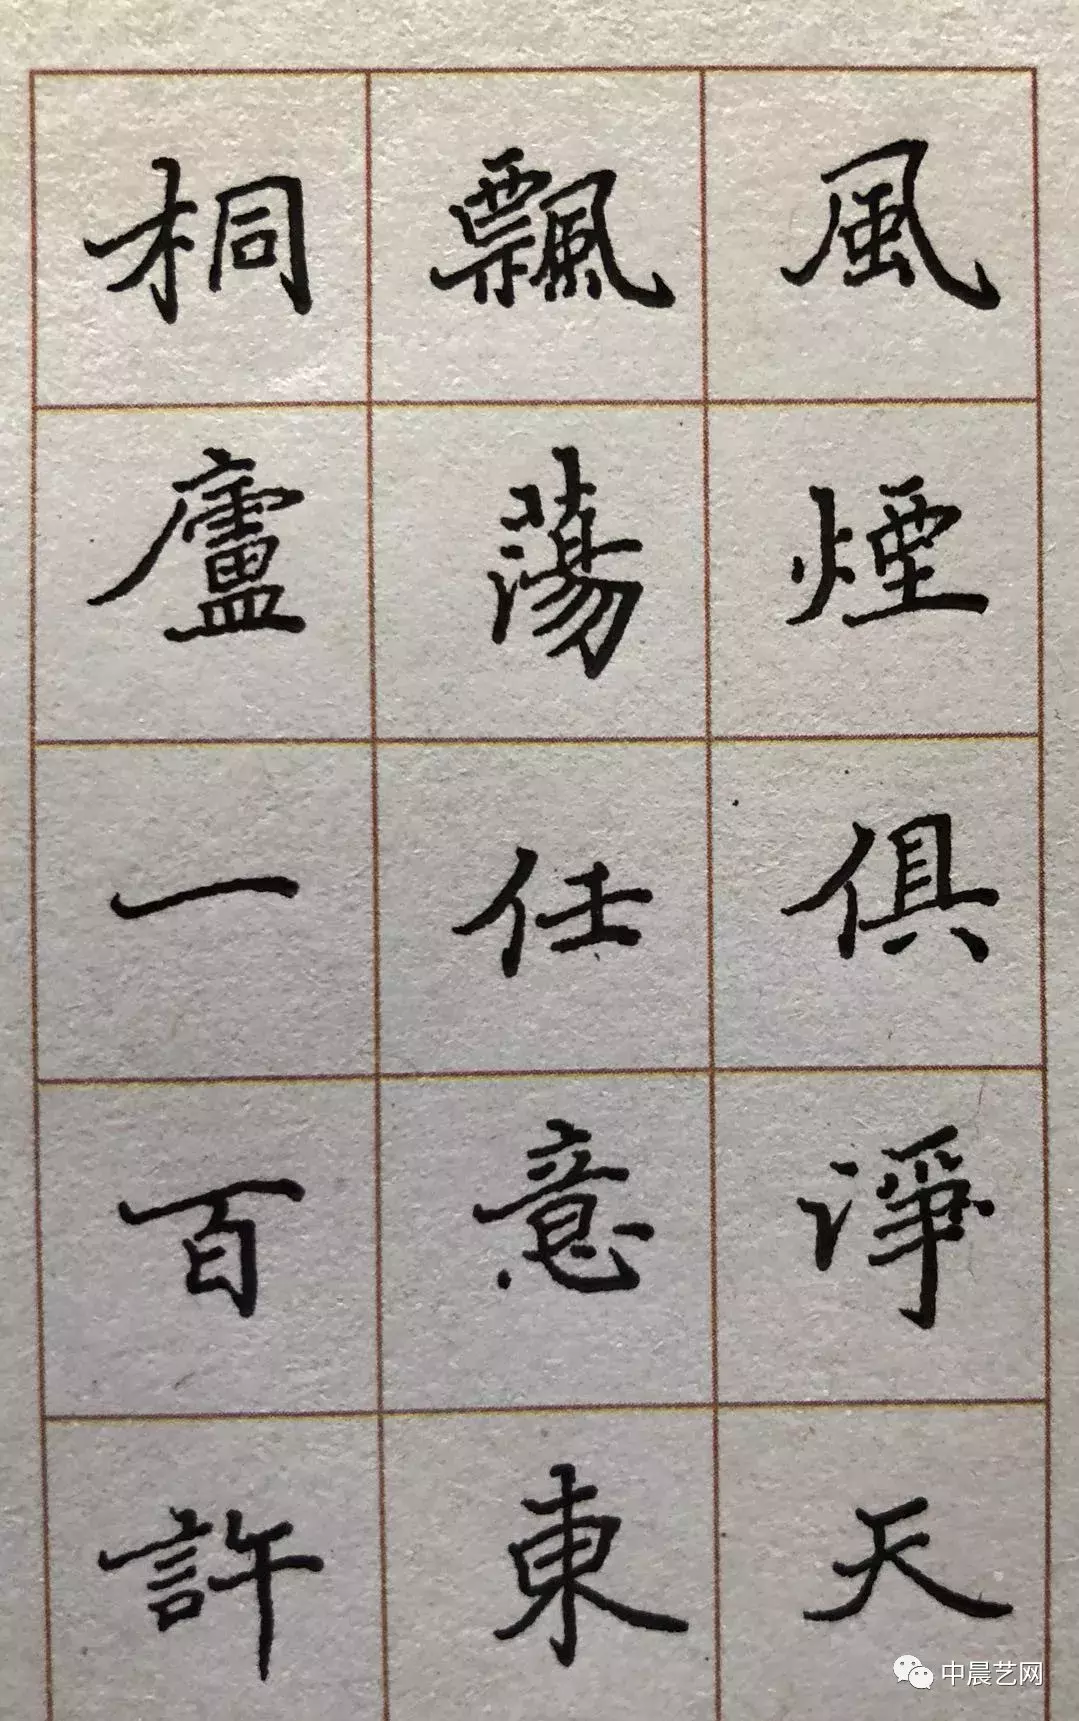 風煙俱淨天
飄蕩任意東
桐廬一百許
中晨艺网